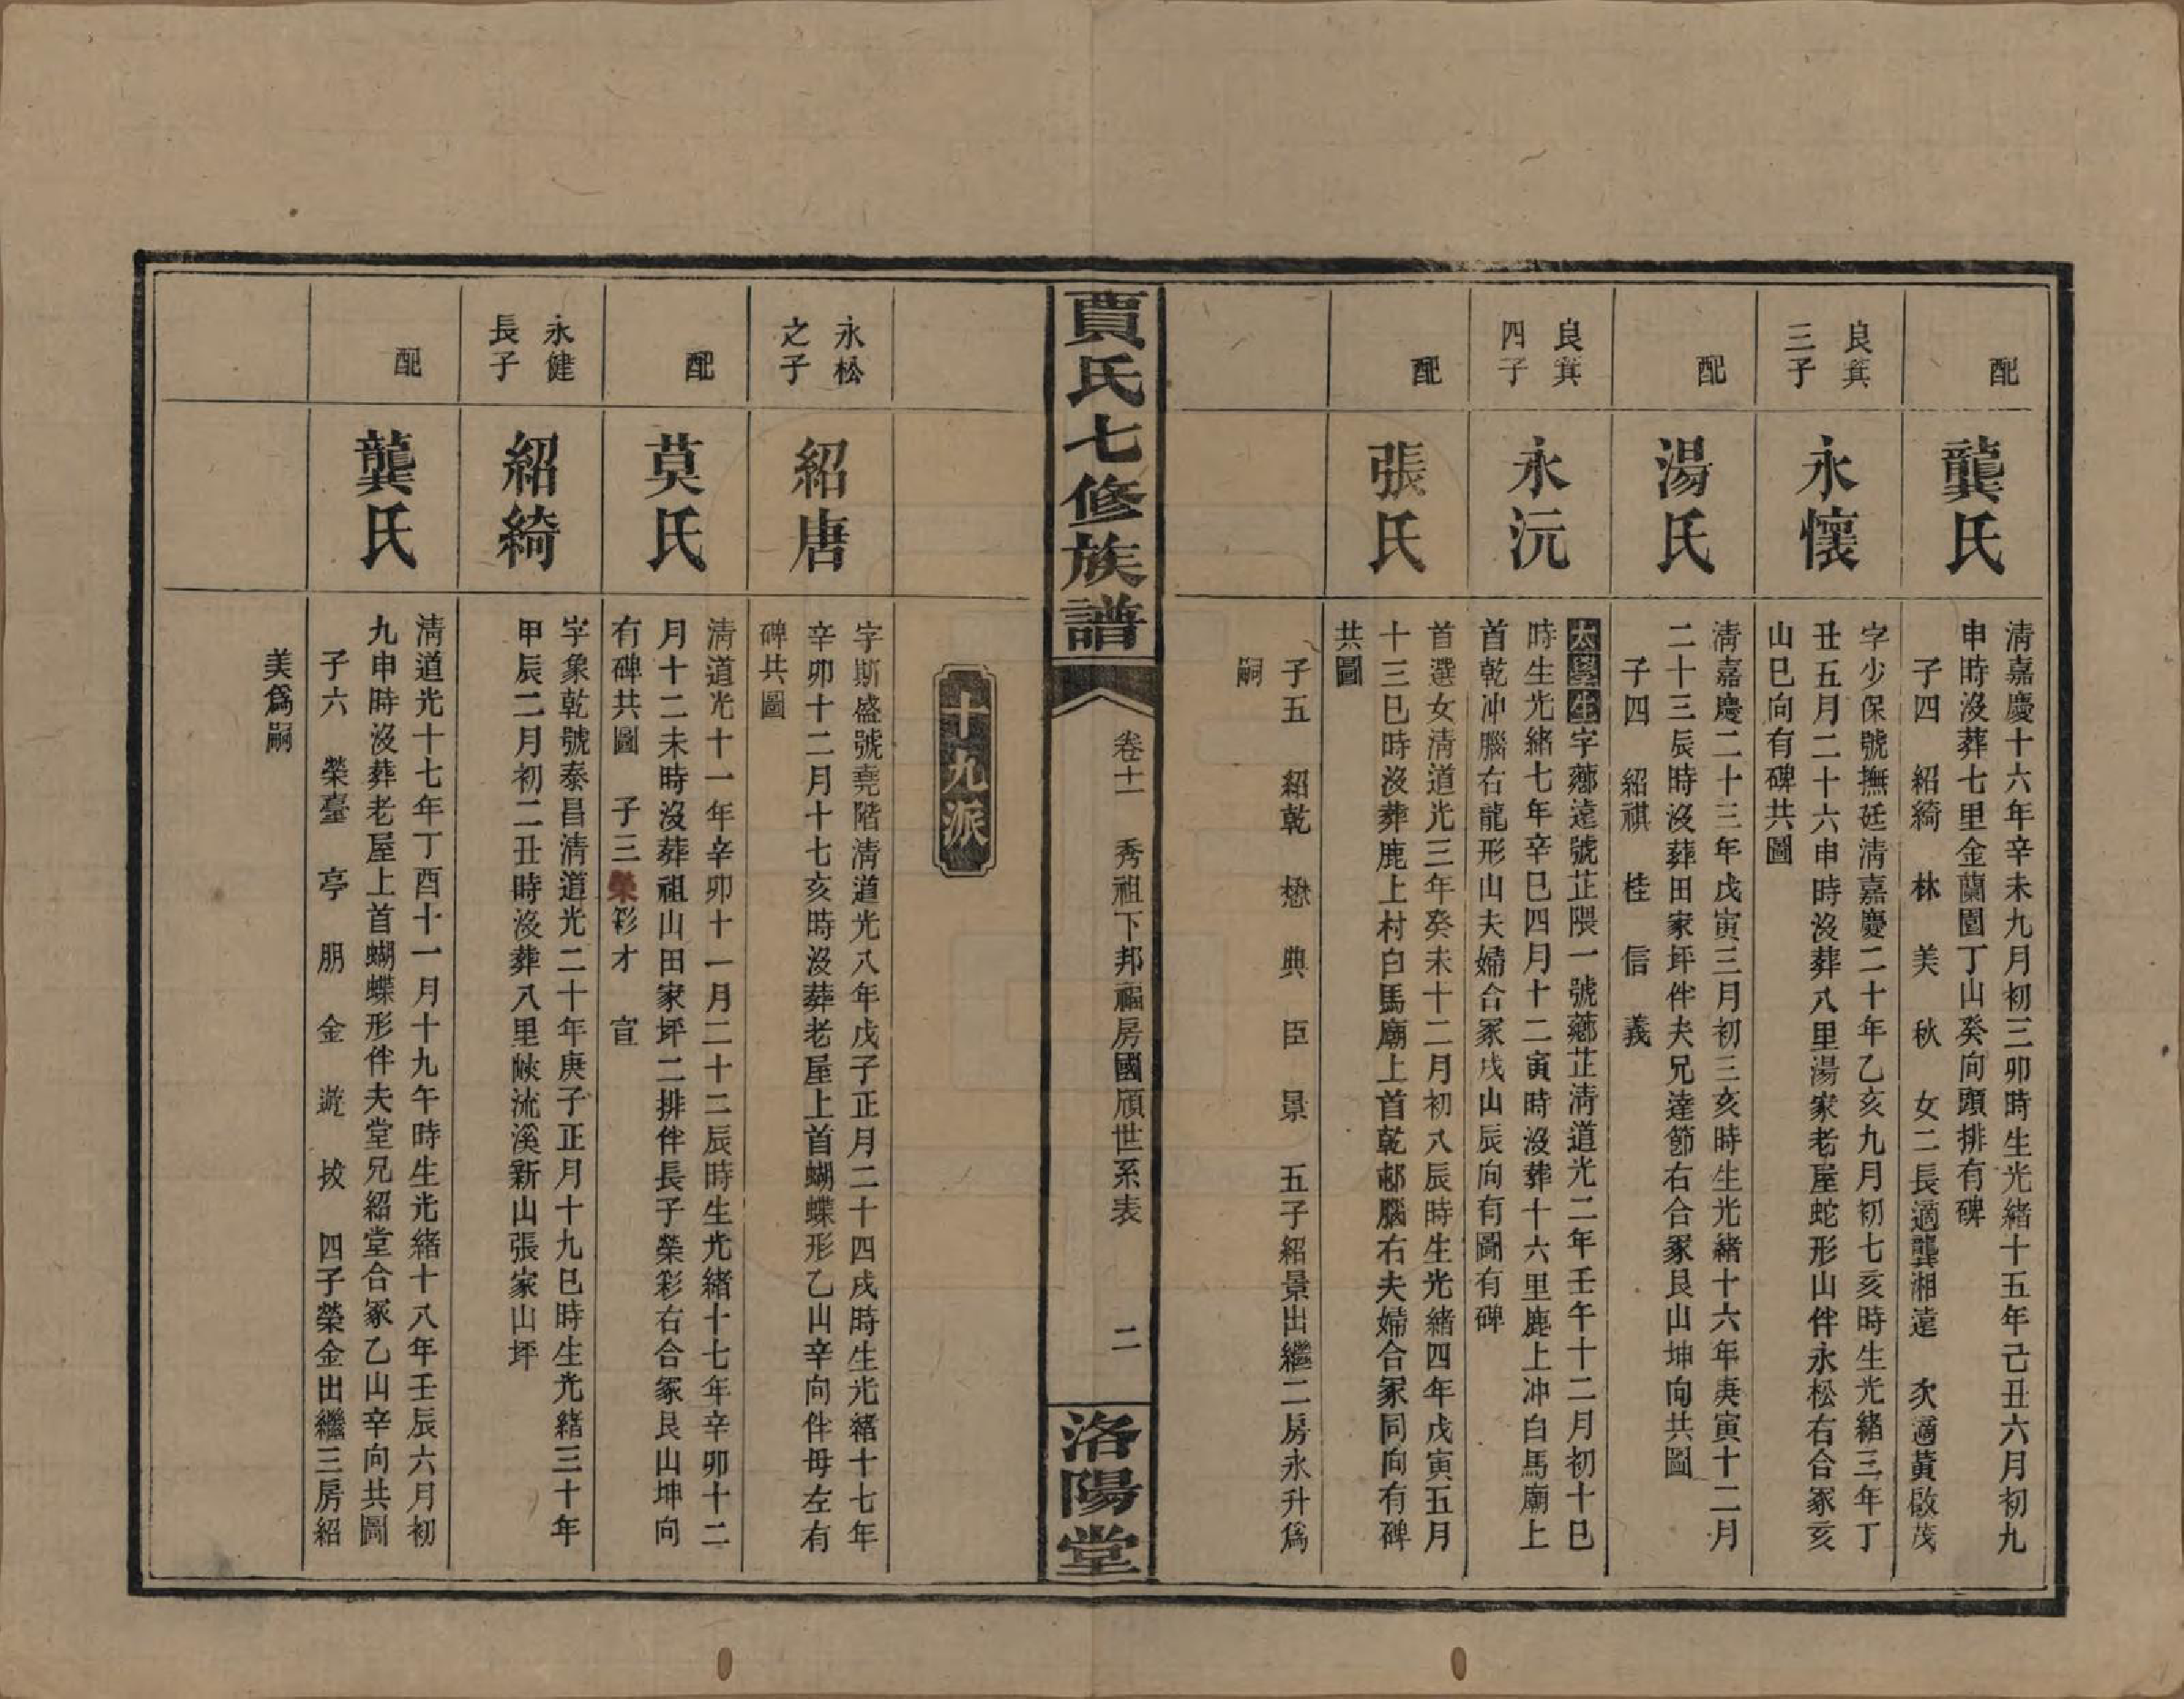 配
龔氏
清嘉慶十六年辛未九月初三卯時生光緒十五年己丑六月初九
申時沒葬七里金蘭園丁山癸向頭排有碑
子四 紹綺 林 美 秋 女二長適龔湘遠 次適黃啟茂
良箕
三子
永懷
字少保號撫廷清嘉慶二十年乙亥九月初七亥時生光緒三年丁
丑五月二十六申時沒葬八里湯家老屋蛇形山伴永松右合冢亥
山巳向有碑共圖
配
湯氏
清嘉慶二十三年戊寅三月初三亥時生光緒十六年庚寅十二月
二十三辰時沒葬田家坪伴夫兄達節右合冢艮山坤向共圖
子四 紹祺 桂 信 義
良箕
四子
永沅
太學生字薌遠號芷隈一號薌芷清道光二年壬午十二月初十巳
時生光緒七年辛巳四月十二寅時沒葬十六里鹿上冲白馬廟上
首乾冲腦右龍形山夫婦合冢戌山辰向有圖有碑
配
張氏
首選女清道光三年癸未十二月初八辰時生光緒四年戊寅五月
十三巳時沒葬鹿上村白馬廟上首乾邨腦右夫婦合冢同向有碑
共圖
子五 紹乾 懋 典 臣 景 五子紹景出繼二房永升爲
嗣
賈氏七修族譜
卷十一 秀祖下邦福房國頎世系表 二
洛陽堂
十九派
永松
之子
紹唐
字斯盛號堯階清道光八年戊子正月二十四戌時生光緒十七年
辛卯十二月十七亥時沒葬老屋上首蝴蝶形乙山辛向伴母左有
碑共圖
配
莫氏
清道光十一年辛卯十一月二十二辰時生光緒十七年辛卯十二
月十二未時沒葬祖山田家坪二排伴長子榮彩右合冢艮山坤向
有碑共圖 子三榮彩才 宣
永健
長子
紹綺
字象乾號泰昌清道光二十年庚子正月十九巳時生光緒三十年
甲辰二月初二丑時沒葬八里陝流溪新山張家山坪
配
龔氏
清道光十七年丁酉十一月十九午時生光緒十八年壬辰六月初
九申時沒葬老屋上首蝴蝶形伴夫堂兄紹堂合冢乙山辛向共圖
子六 榮臺 亭 朋 金 遊 拔 四子榮金出繼三房紹
美爲嗣